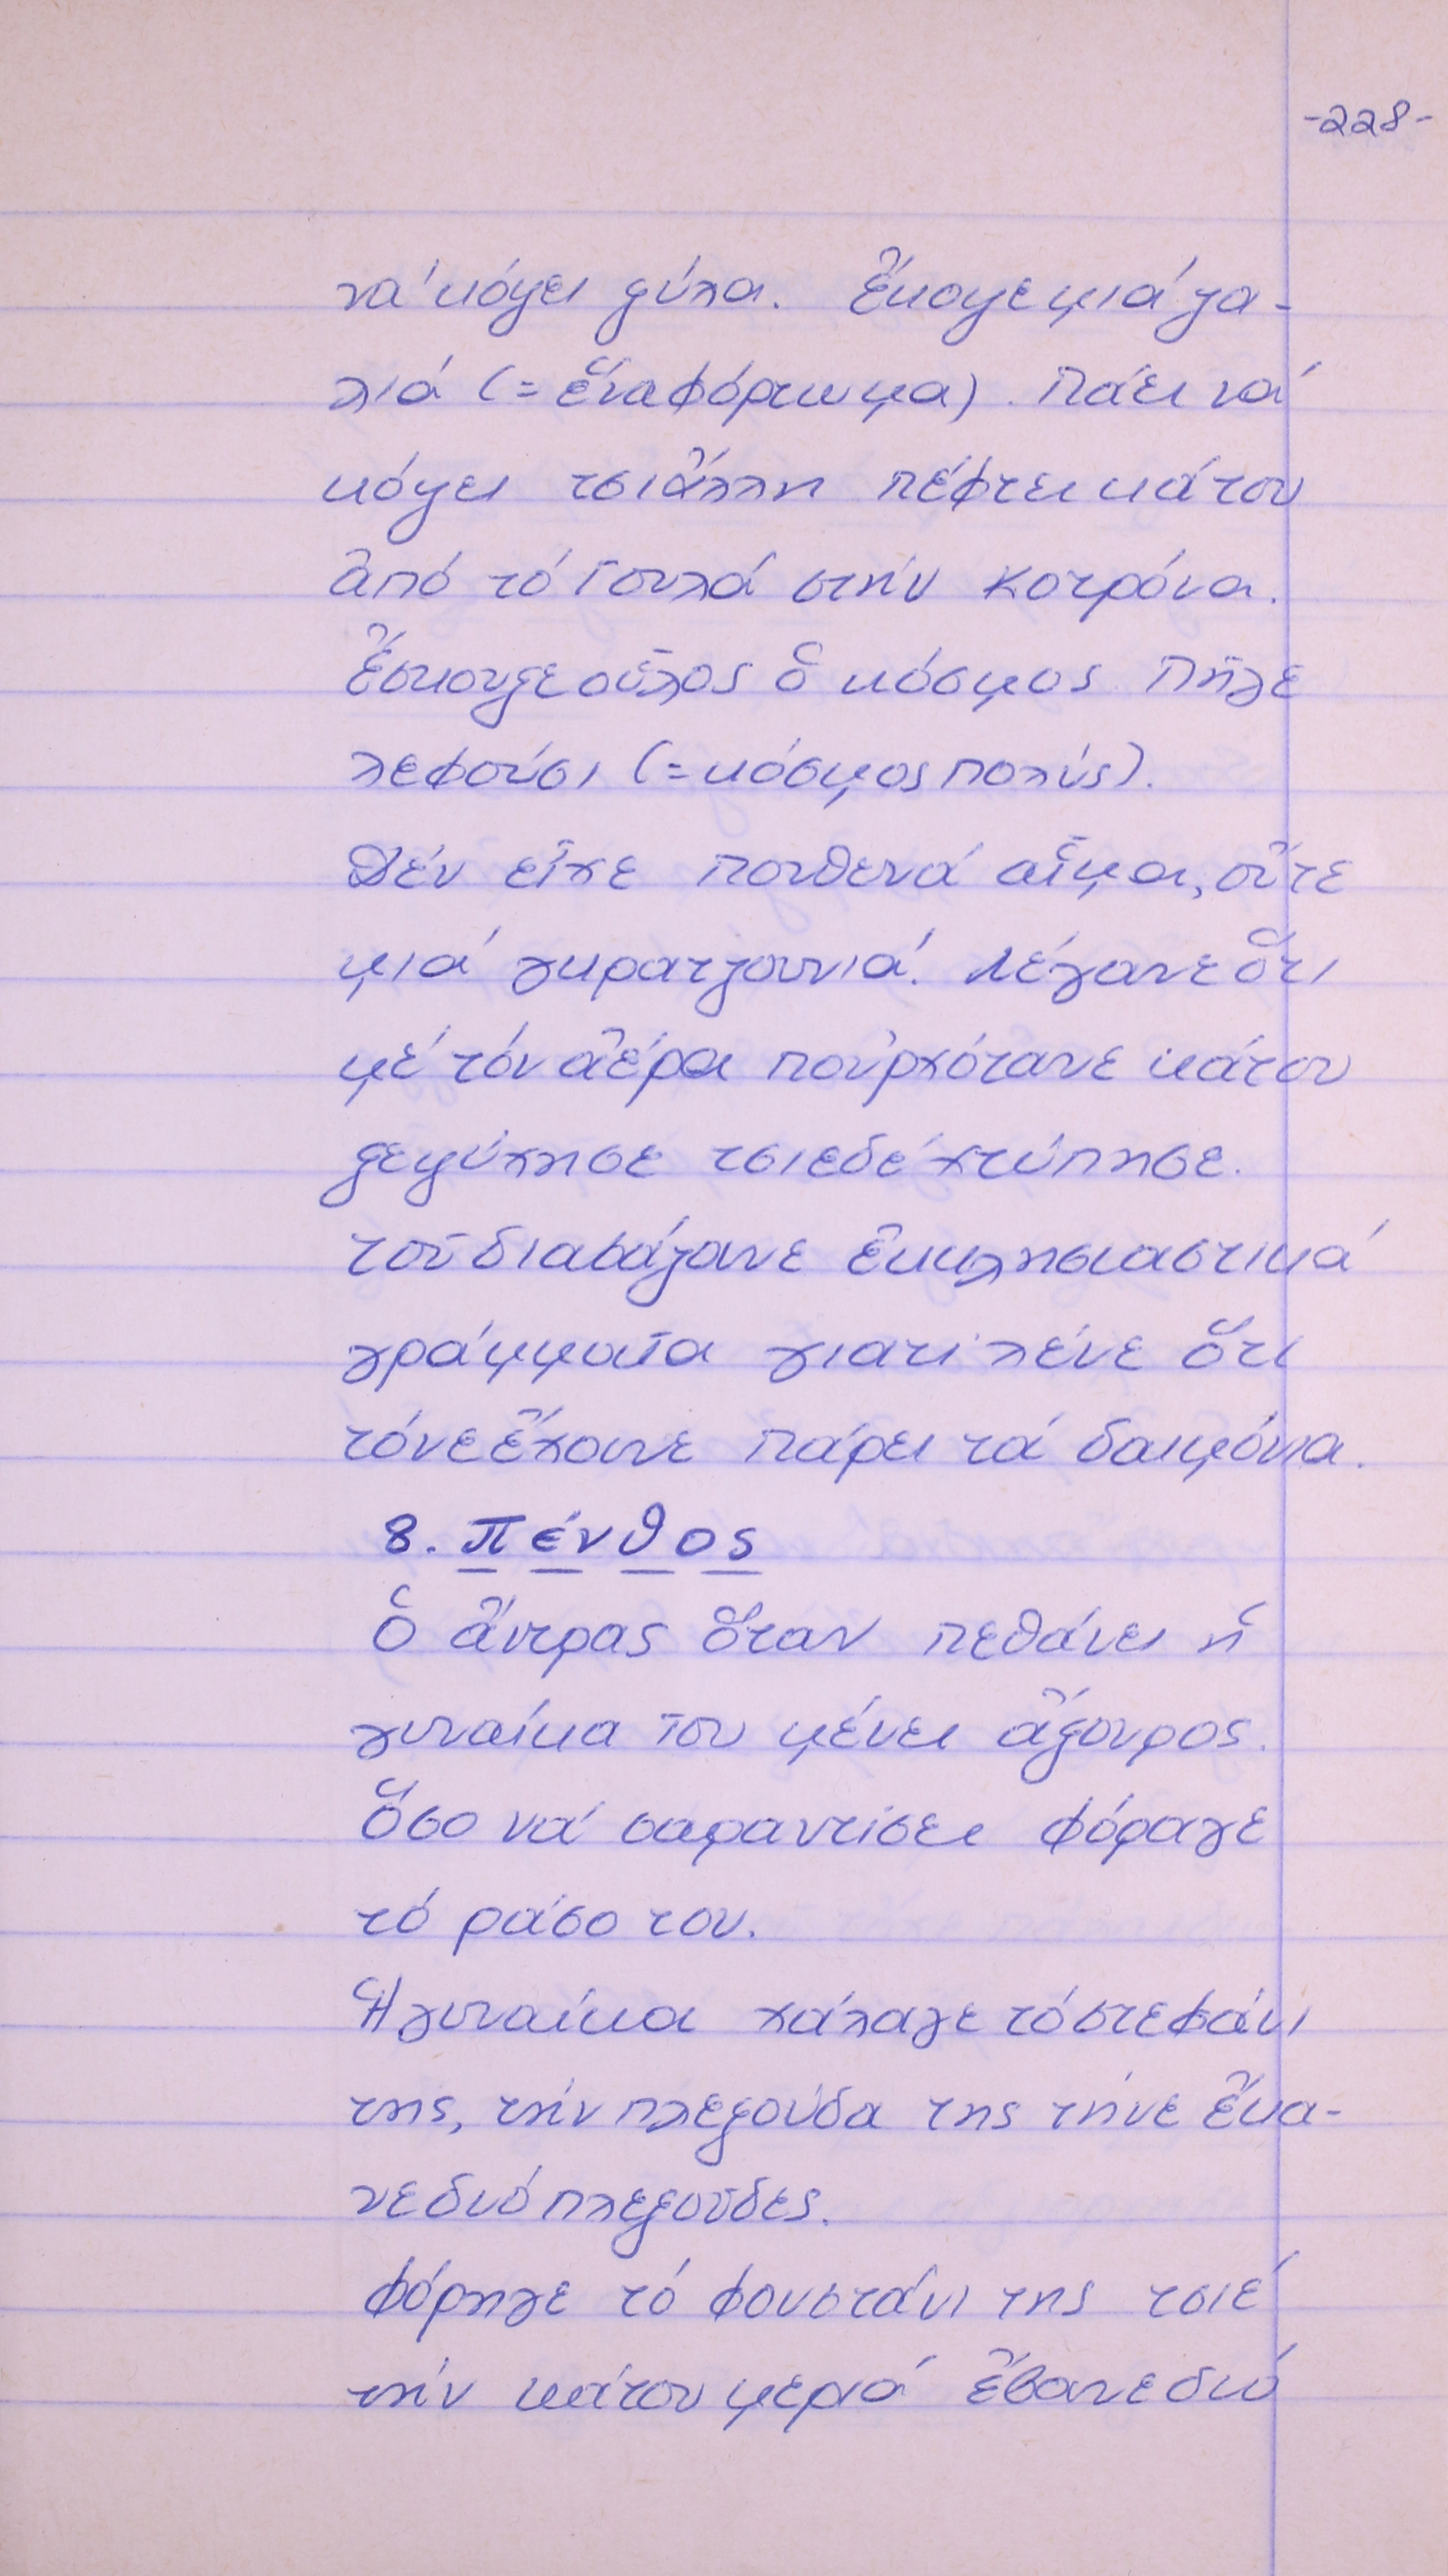 -228-
νά κόψει ξύλα. Ἔκοψε μιά ζα-
λιά (= ἕνα φόρτωμα). Πάει νά
κόψει τσι ἄλλη πέφτει κάτου
ἀπό τό Γουλά στήν Κοτρόνα.
Ἔσκουξε οὗλος ὁ κόσμος. Πῆγε
λεφούσι (= κόσμος πολύς).
Δέν εἶχε πουθενά αἷμα, οὔτε
μιά γκρατζουνιά. Λέγανε ὅτι
μέ τόν ἀέρα πού ρχότανε κάτου
ξεψύχησε τσιεδέ χτύπησε.
τοῦ διαβάζανε ἐκκλησιαστικά
γράμματα γιατί λένε ὅτι
τόνε ἔχουνε πάρει τά δαιμόνια.
8. Πένθος
Ὁ ἄντρας ὅταν πεθάνει ἡ
γυναίκα του μένει ἄξουρος.
Ὅσο νά σαραντίσει φόραγε
τό ράσο του.
Ἡ γυναίκα χάλαγε τό στεφάνι
της, τήν πλεξούδα της τήνε ἔκα-
νε δυό πλεξοῦδες.
Φόρηγε τό φουστάνι της τσιέ
τήν κάτου μεριά ἔβανε δυό